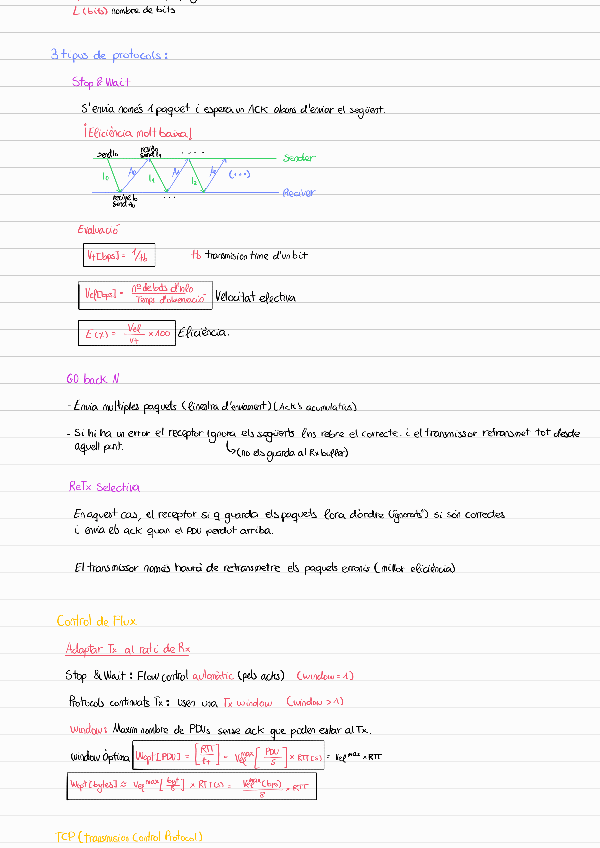 L (bits) nombre de bits
3 tipus de protocols:
Stop & Wait
S'envia només 1 paquet i espera un ACK abans d'enviar el següent.
¡Eficiència molt baixa!
send I0
send I1
. . . .
Sender
I0
A0
I1
A1
I2
(...)
send A0
...
Reciver
Evaluació
Vt[bps] = 1/tb
tb transmision time d'un bit
Vef[bps] = nº de bits d'info / Temps d'observació
Velocitat efectiva
E(%) = Vef/vt × 100
Eficiència.
GO back N
- Envia multiples paquets (finestra d'enviament) (Acks acumulatius)
- Si hi ha un error el receptor ignora els següents fins rebre el correcte. i el transmissor retransmet tot desde
aquell punt.
(no els guarda al Rx buffer)
ReTx Selectiva
En aquest cas, el receptor si q guarda els paquets fora d'ordre ("ignorats") si són correctes
i envia els ack quan el PDU perdut arriba.
El transmissor només haurà de retransmetre els paquets erronis (millor eficiència)
Control de Flux
Adaptar Tx al ratí de Rx
Stop & Wait: Flow control automàtic (pels acks) (window=1)
Protocols continuats Tx: usen una Tx window (window >1)
Window: Maxim nombre de PDUs sense ack que poden estar al Tx.
Window Òptima
Wopt[PDU] = [RTT/tt] = Vef^max [PDU/s] × RTT(s) = Vef^max × RTT
Wopt[bytes] ≈ Vef^max [byt/s] × RTT(s) = Vef^max(bps)/8 × RTT
TCP (Transmision Control Protocol)